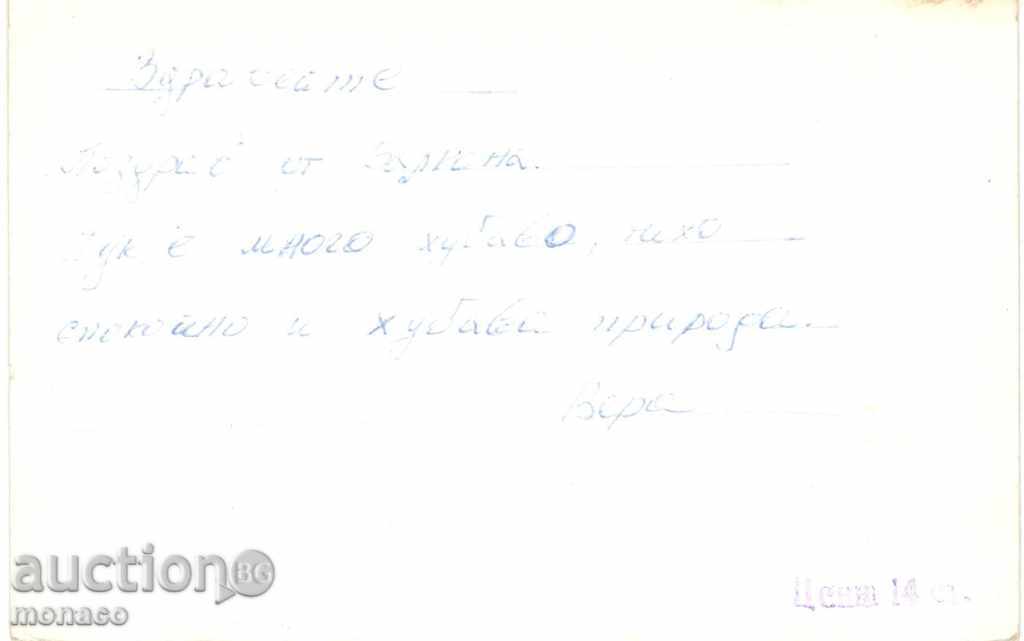 Здравейте
Поздрав от
Тук е много хубаво, тихо
спокойно и хубава природа.
Вера
auctionBG
monaco
Цена 14 ст.